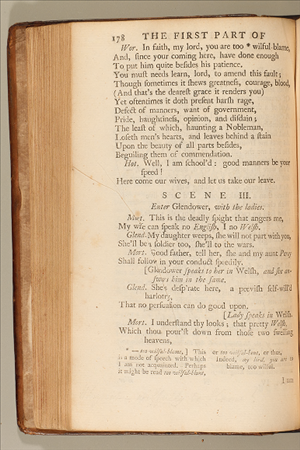 178 THE FIRST PART OF
Wor. In faith, my lord, you are too * wilful-blame,
And, since your coming here, have done enough
To put him quite besides his patience.
You must needs learn, lord, to amend this fault;
Though sometimes it shews greatness, courage, blood,
(And that's the dearest grace it renders you)
Yet oftentimes it doth present harsh rage,
Defect of manners, want of government,
Pride, haughtiness, opinion, and disdain;
The least of which, haunting a Nobleman,
Loseth men's hearts, and leaves behind a stain
Upon the beauty of all parts besides,
Beguiling them of commendation.
Hot. Well, I am school'd: good manners be your
speed!
Here come our wives, and let us take our leave.
SCENE III.
Enter Glendower, with the ladies.
Mort. This is the deadly spight that angers me,
My wife can speak no English, I no Welsh.
Glend. My daughter weeps, she will not part with you,
She'll be a soldier too, she'll to the wars.
Mort. Good father, tell her, she and my aunt Percy
Shall follow in your conduct speedily.
[Glendower speaks to her in Welsh, and she an-
swers him in the same.
Glend. She's desp'rate here, a peevish self-will'd
harlotry,
That no persuasion can do good upon.
[Lady speaks in Welsh.
Mort. I understand thy looks; that pretty Welsh,
Which thou pour'st down from those two swelling
heavens,
* —too wilful-blame,] This
is a mode of speech with which
I am not acquainted. Perhaps
it might be read too wilful-blunt,
or too wilful-bent, or thus,
Indeed, my lord, you are to
blame, too wilful.
I am